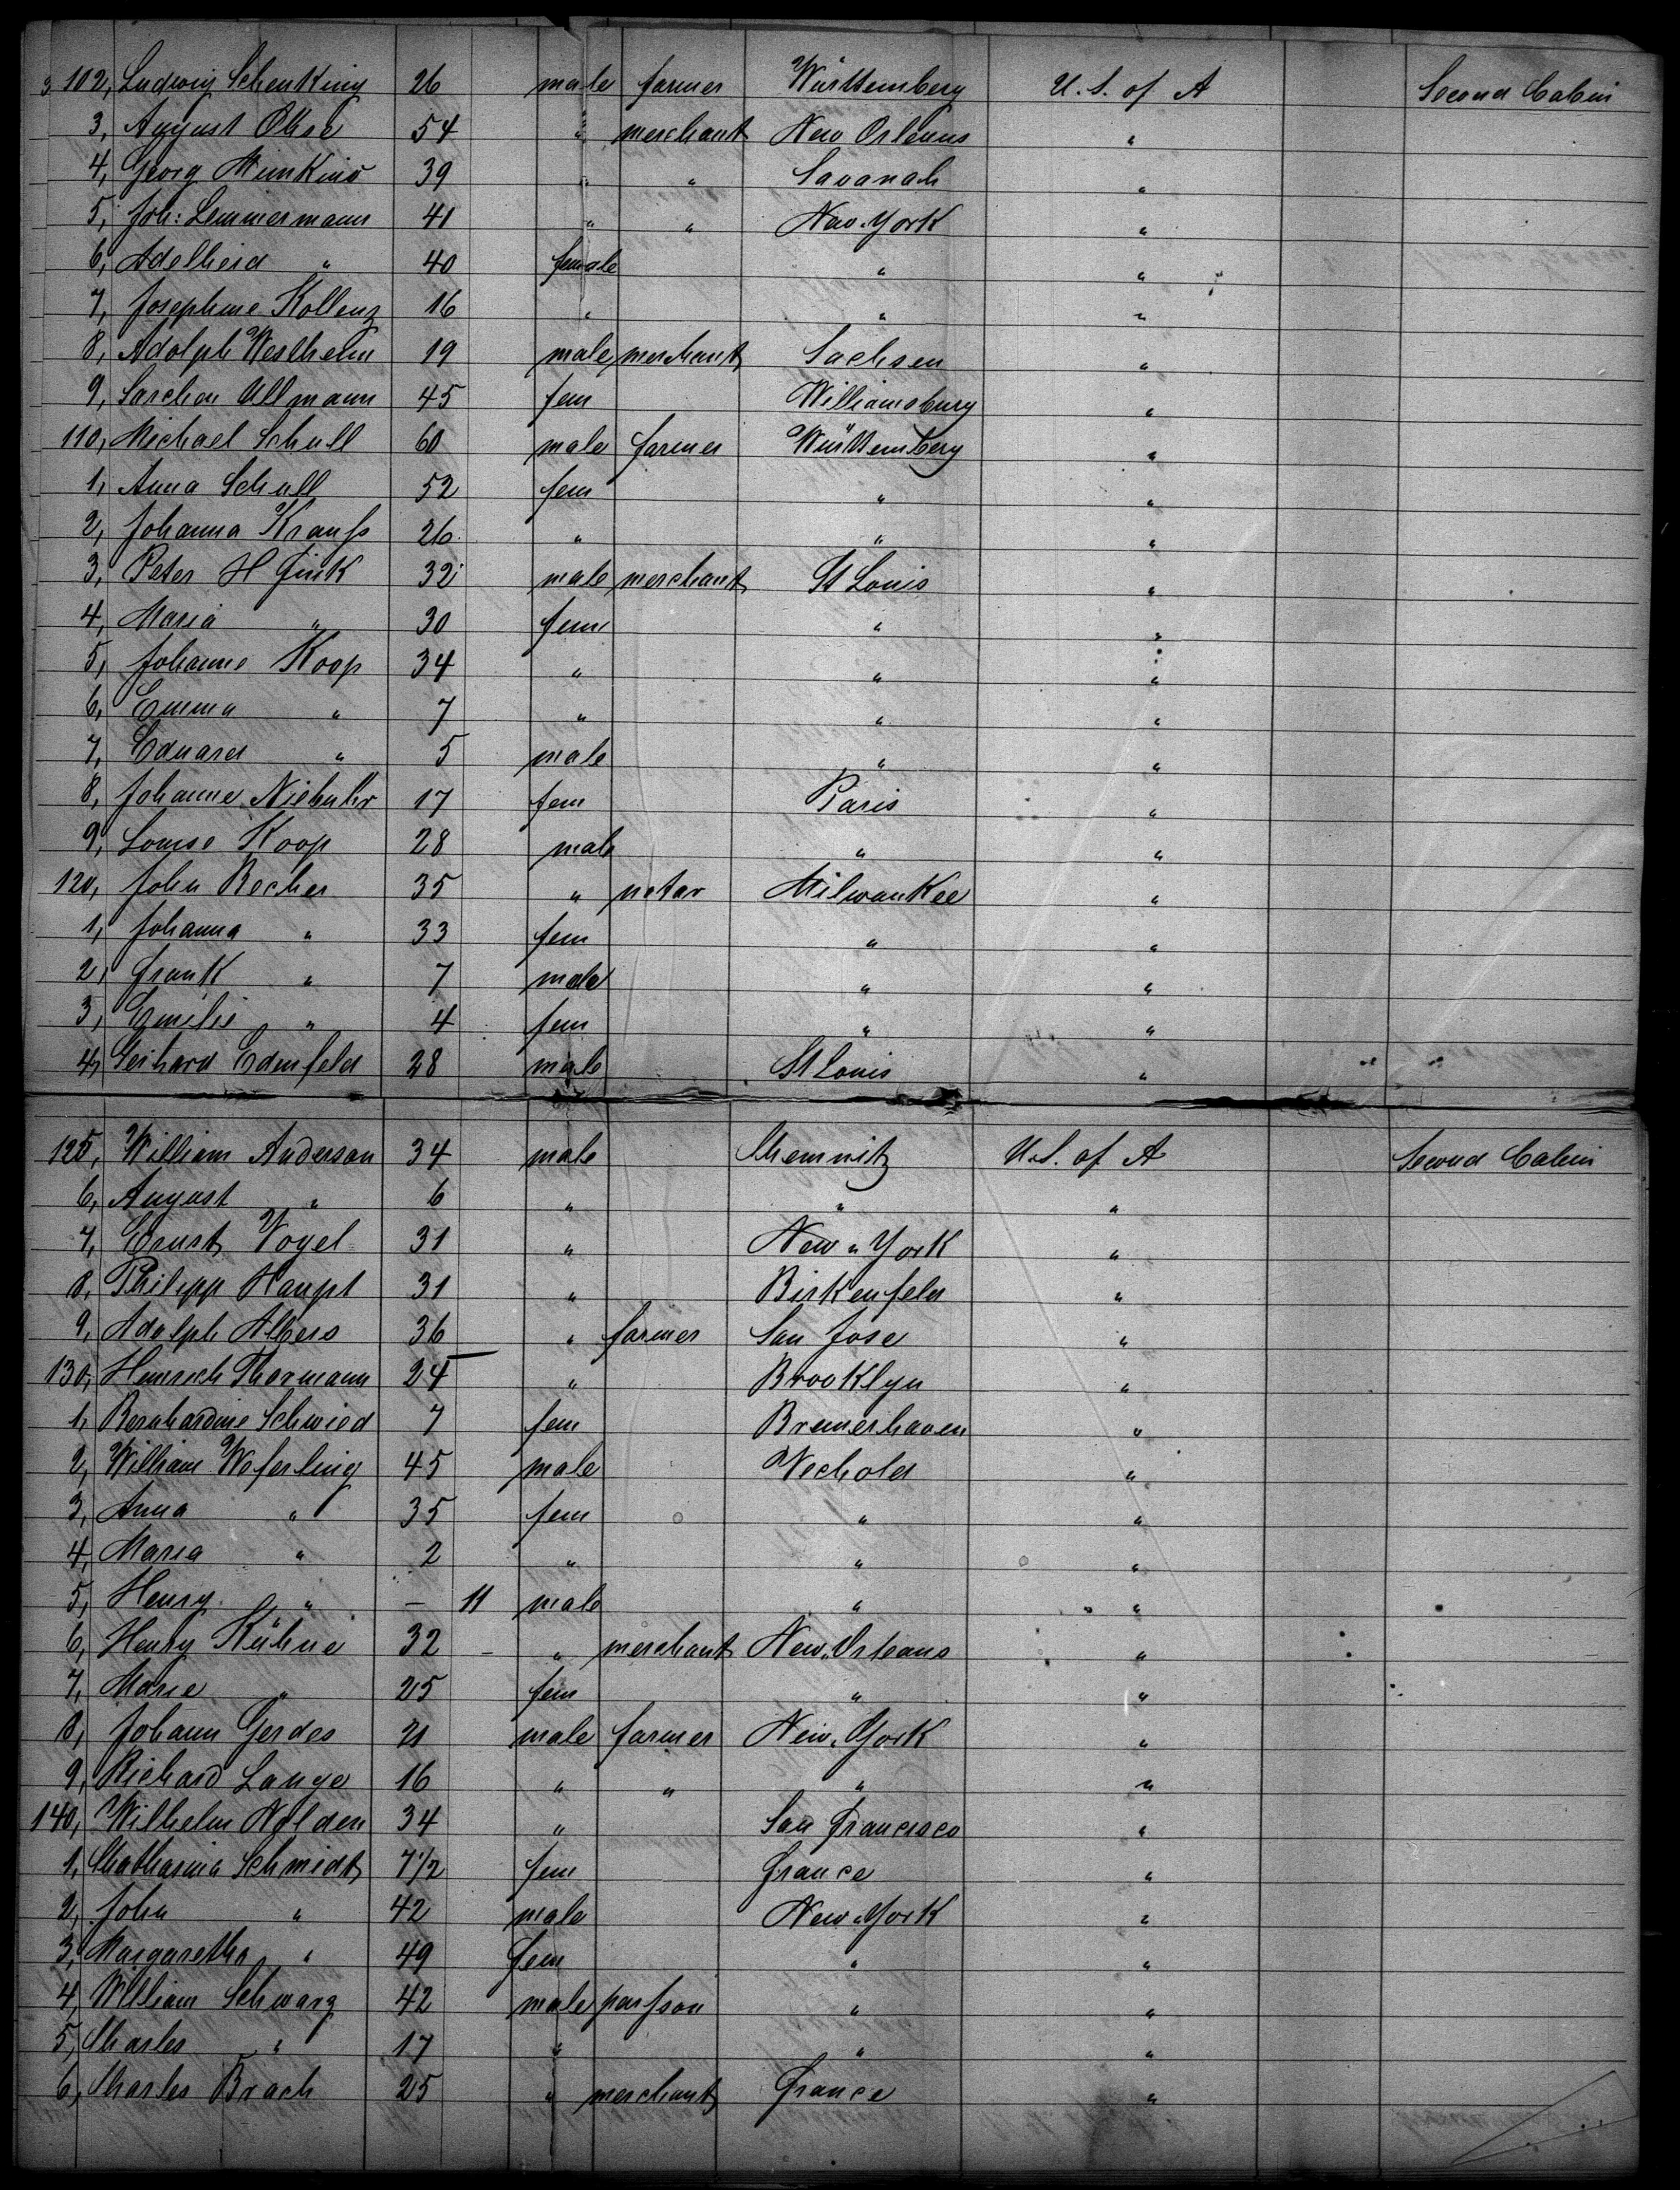 102, Ludwig Schenking 26 male farmer Württemberg U. S. of A Second Cabin
3, August Ohse 54 " merchant New Orleans "
4, Georg " 39 " " Savanah "
5, Joh: Lemmermann 41 " " New-York "
6, Adelheid " 40 female " "
7, Josephine Kollenz 16 " " "
8, Adolph Westheim 19 male merchant Sachsen "
9, Sarchen Ullmann 45 fem Williamsburg "
110, Michael Schull 60 male farmer Württemberg "
1, Anna Schull 52 fem " "
2, Johanna Krauss 26 " " "
3, Peter H Fink 32 male merchant St Louis "
4, Maria " 30 fem " "
5, Johanne Koop 34 " " "
6, Emma " 7 " " "
7, Eduard " 5 male " "
8, Johanne Niebuhr 17 fem Paris "
9, Louise Koop 28 male " "
120, John Becher 35 " notar Milwaukee "
1, Johanna " 33 fem " "
2, Frank " 7 male " "
3, Emilie " 4 fem " "
4, Gerhard Edenfeld 28 male St Louis "
125, William Anderson 34 male Chemnitz U. S. of A Second Cabin
6, August " 6 " " "
7, Ernst Vogel 31 " New-York "
8, Philipp Haupt 31 " Birkenfeld "
9, Adolph Albers 36 " farmer San Jose "
130, Heinrich Thormann 24 " Brooklyn "
1, Bernhardine Schmied 7 fem Bremerhaven "
2, William Weferling 45 male Vechold "
3, Anna " 35 fem " "
4, Maria " 2 " " "
5, Henry " – 11 male " "
6, Henry Kühne 32 – " merchant New-Orleans "
7, Marie " 25 fem " "
8, Johann Gerdes 21 male farmer New-York "
9, Richard Lange 16 " " " "
140, Wilhelm Nolden 34 " San Francisco "
1, Chatharina Schmidt 7 1/2 fem France "
2, John " 42 male New-York "
3, Margaretha " 49 fem " "
4, William Schwarz 42 male parsson " "
5, Charles " 17 " " "
6, Charles Brach 25 " merchant France "